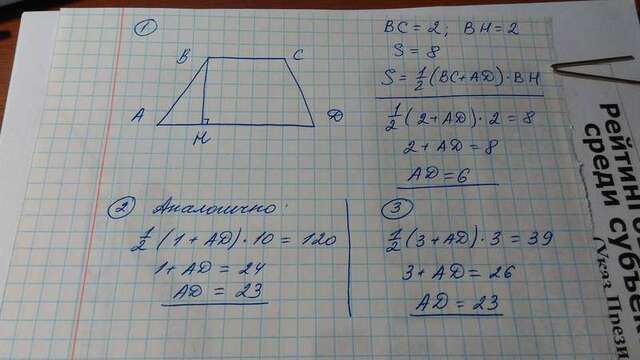 1
BC = 2; BH = 2
S = 8
S = 1/2 (BC + AD) · BH
B C
A D
H
1/2 (2 + AD) · 2 = 8
2 + AD = 8
AD = 6
2 Аналогично:
1/2 (1 + AD) · 10 = 120
1 + AD = 24
AD = 23
3
1/2 (3 + AD) · 3 = 39
3 + AD = 26
AD = 23
Рейтинг
среди субъек
(Указ Прези